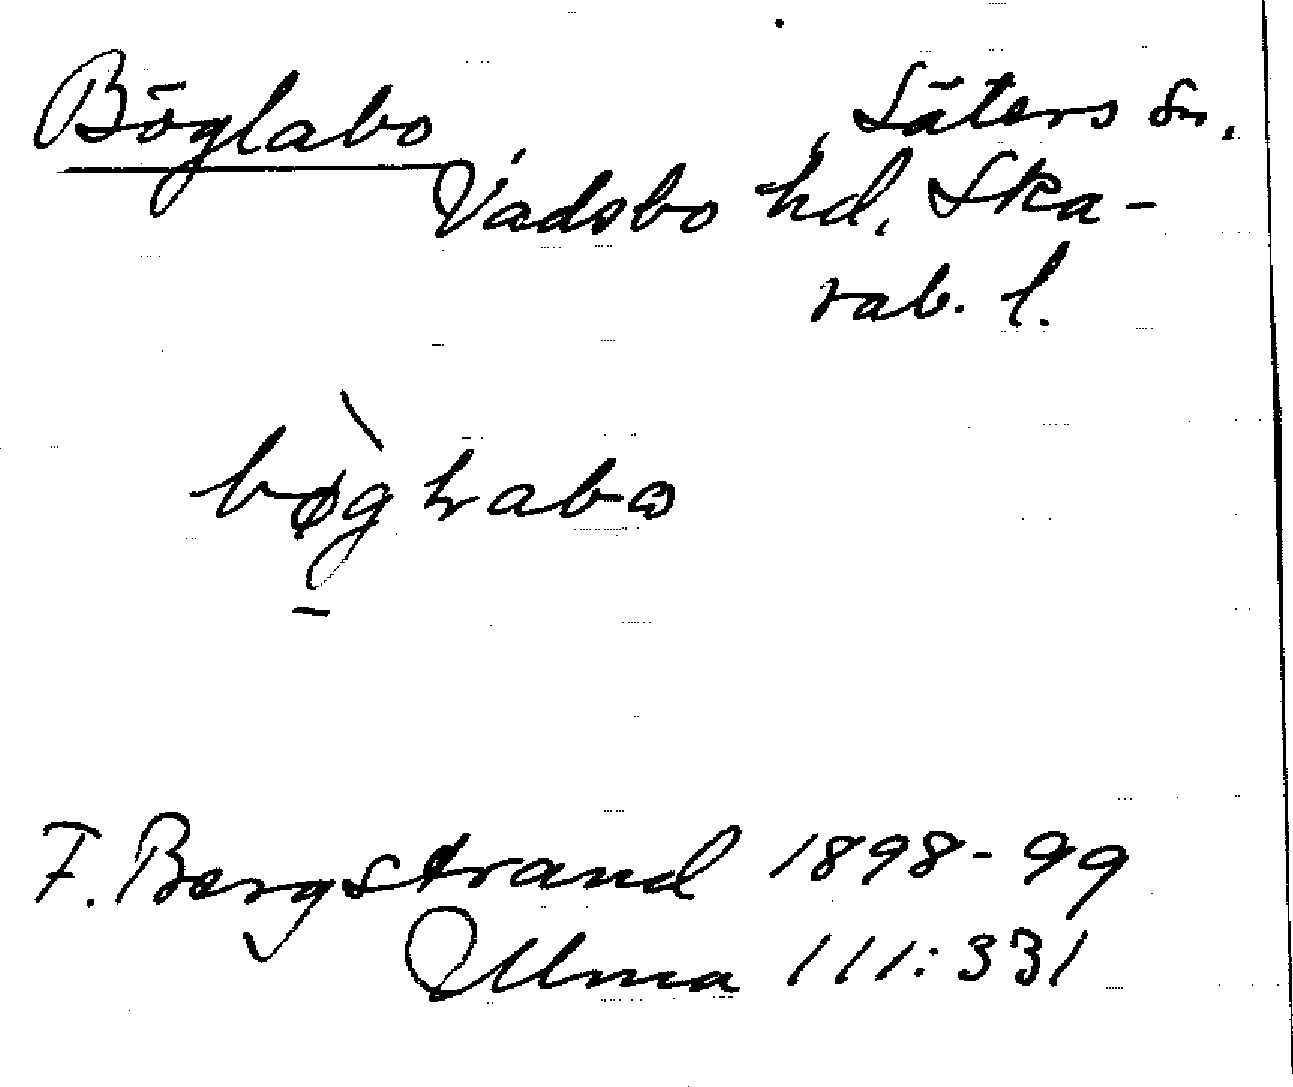 Böglabo, Säters sn,
Vadsbo hd, Ska-
rab. l.
F. Bergstrand 1898-99
Ulma 111:331